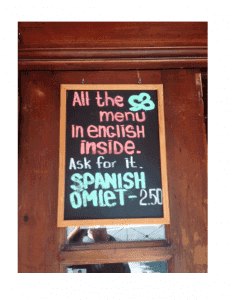 All the
menu
in english
inside.
Ask for it.
SPANISH
OMLET-2.50